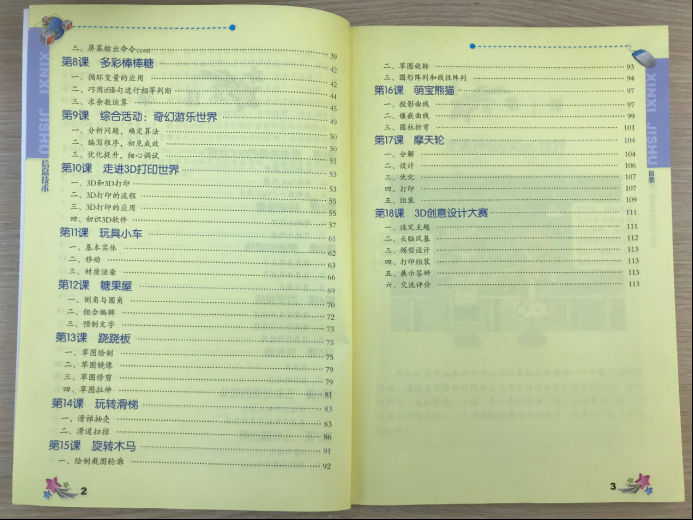 三、屏幕输出命令cout 39
第8课 多彩棒棒糖 42
一、循环变量的应用 42
二、巧用if语句进行相等判断 44
三、求余数运算 45
第9课 综合活动：奇幻游乐世界 49
一、分析问题，确定算法 50
二、编写程序，初见成效 50
三、优化提升，细心调试 51
第10课 走进3D打印世界 53
一、3D和3D打印 53
二、3D打印的流程 55
三、3D打印的应用 55
四、初识3D软件 57
第11课 玩具小车 61
一、基本实体 62
二、移动 63
三、材质渲染 66
第12课 糖果屋 69
一、倒角与圆角 70
二、组合编辑 72
三、预制文字 73
第13课 跷跷板 75
一、草图绘制 75
二、草图镜像 79
三、草图修剪 79
四、草图拉伸 81
第14课 玩转滑梯 83
一、滑梯抽壳 83
二、滑道扫掠 86
第15课 旋转木马 91
一、绘制截图轮廓 92
XINXI JISHU
信息技术
2
二、草图旋转 93
三、圆形阵列和线性阵列 94
第16课 萌宝熊猫 97
一、投影曲线 97
二、镶嵌曲线 99
三、圆柱折弯 101
第17课 摩天轮 104
一、分解 104
二、设计 106
三、优化 107
四、打印 107
五、组装 109
第18课 3D创意设计大赛 111
一、选定主题 111
二、头脑风暴 112
三、模型设计 113
四、打印组装 113
五、展示答辩 113
六、交流评价 113
XINXI JISHU
目录
3